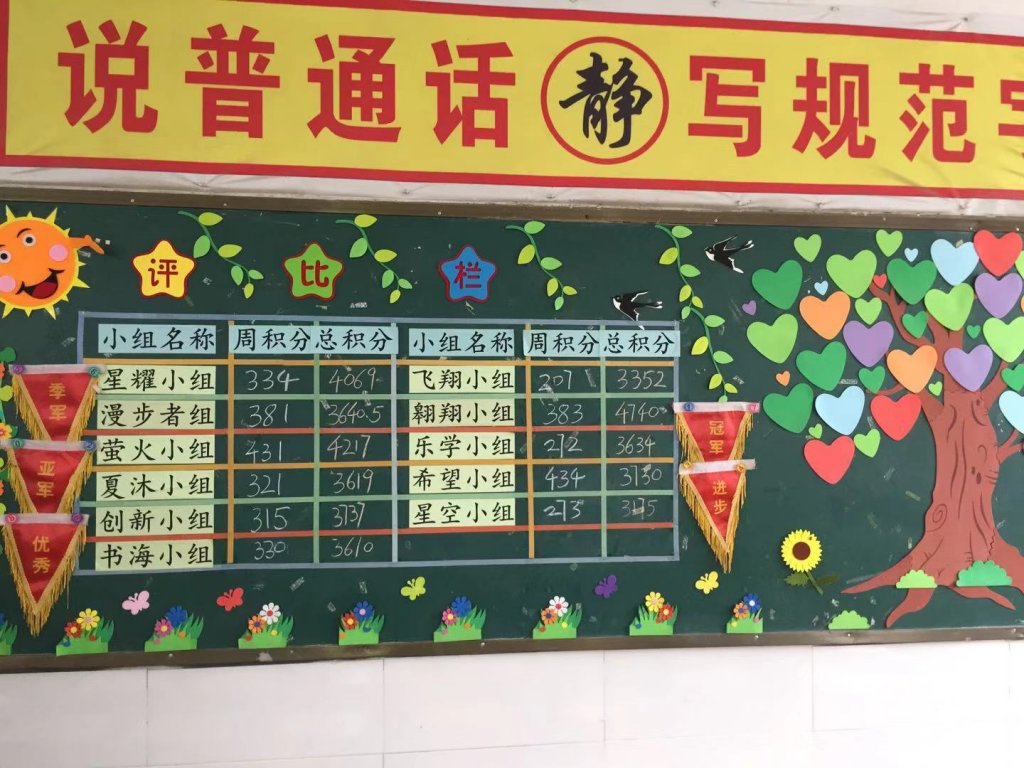 说普通话 静 写规范
评比栏
小组名称 周积分 总积分 小组名称 周积分 总积分
星耀小组 334 4069 飞翔小组 207 3352
漫步者组 381 3640.5 翱翔小组 383 4740
萤火小组 431 4217 乐学小组 212 3634
夏沐小组 321 3619 希望小组 434 3130
创新小组 315 3737 星空小组 273
书海小组 330 3610
季军
亚军
优秀
冠军
进步